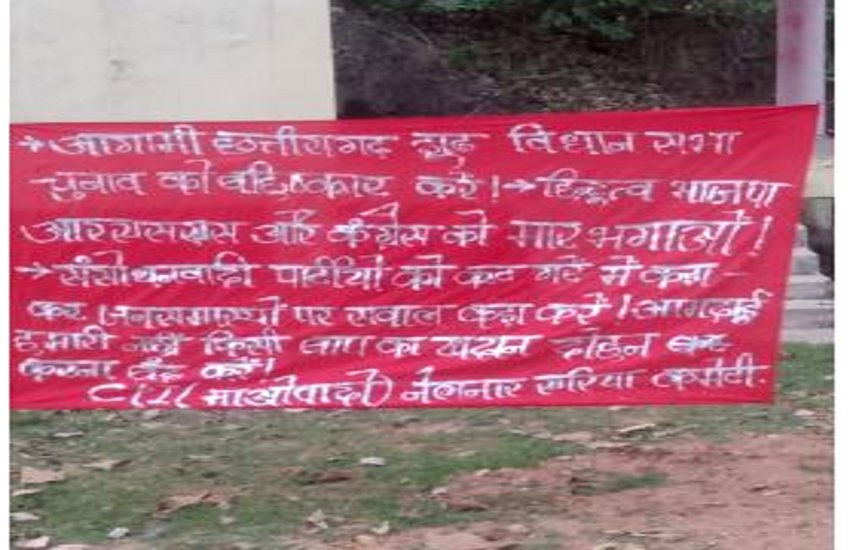 →आगामी छत्तीसगढ़ विधान सभा
चुनाव को बहिष्कार करें!→हिन्दुत्व भाजपा
आरएसएस और कंग्रेस को मार भगाओ!
→संसोधनवादी पार्टीयों को कट गरे में कड़ा -
कर जनसमास्यों पर सवाल कड़ा करें!आमदाई
हमारी नही किसी बाप का खदान दोहन
करना बंद करें!
(माओवादी) नेलनार एरिया कमेटी.